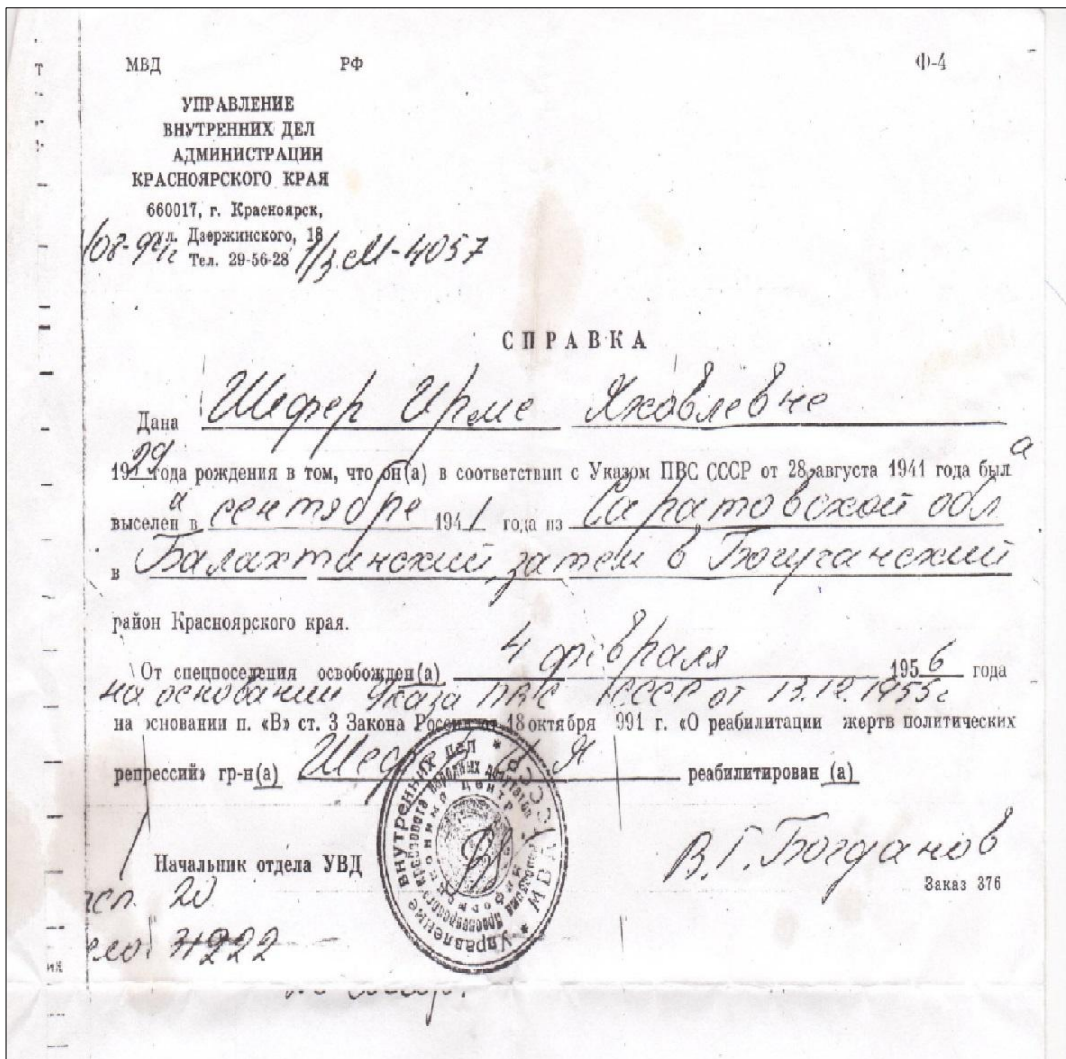 МВД РФ Ф-4
УПРАВЛЕНИЕ
ВНУТРЕННИХ ДЕЛ
АДМИНИСТРАЦИИ
КРАСНОЯРСКОГО КРАЯ
660017, г. Красноярск,
ул. Дзержинского, 18
Тел. 29-56-28
М-4057
СПРАВКА
Дана Шефер Ирме Яковлевне
1929 года рождения в том, что он(а) в соответствии с Указом ПВС СССР от 28 августа 1941 года был а
выселен а в сентябре 1941 года из Саратовской обл
в Балахтинский, затем в Богучанский
район Красноярского края.
От спецпоселения освобожден(а) 4 февраля 1956 года
на основании Указа ПВС СССР от 13.12.1955г
на основании п. «В» ст. 3 Закона России от 18 октября 991 г. «О реабилитации жертв политических
репрессий» гр-н(а) Шефер И Я реабилитирован (а)
Начальник отдела УВД В.Г. Богданов
Заказ 376
исп. 20